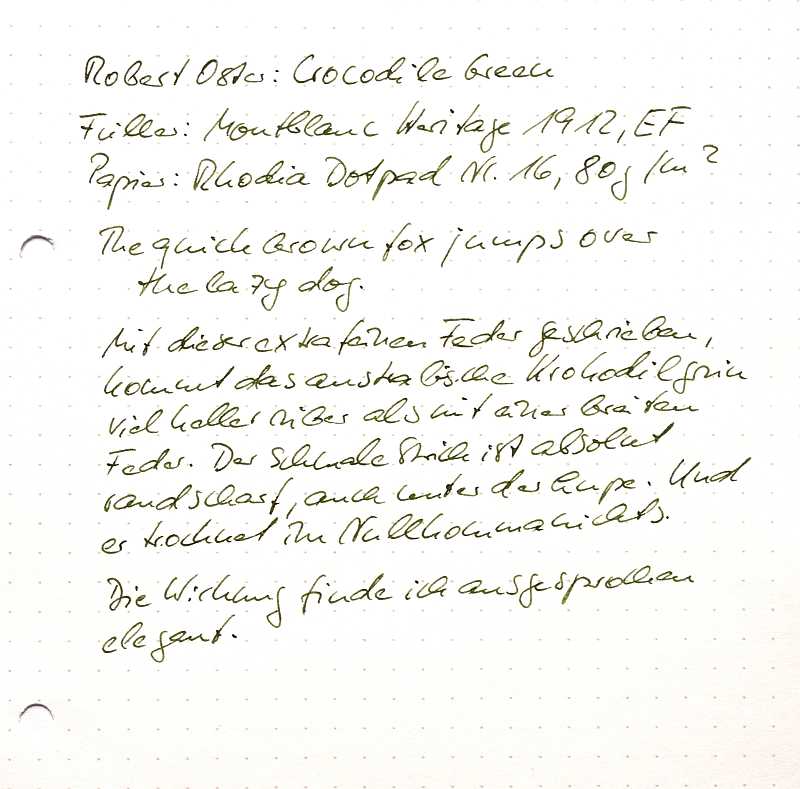 Robert Oster: Crocodile Green
Füller: Montblanc Heritage 1912, EF
Papier: Rhodia Dotpad Nr. 16, 80g/m²
The quick brown fox jumps over
the lazy dog.
Mit dieser extrafeinen Feder geschrieben,
kommt das australische Krokodilgrün
viel heller rüber als mit einer breiten
Feder. Der schmale Strich ist absolut
randscharf, auch unter der Lupe. Und
er trocknet im Nullkommanichts.
Die Wirkung finde ich ausgesprochen
elegant.